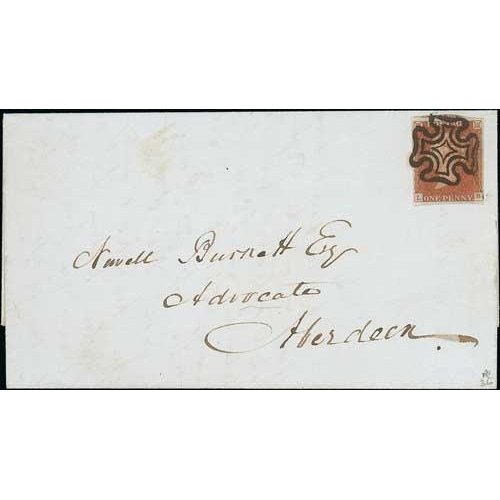 ONE PENNY
Newell Burnett Esq
Advocate
Aberdeen